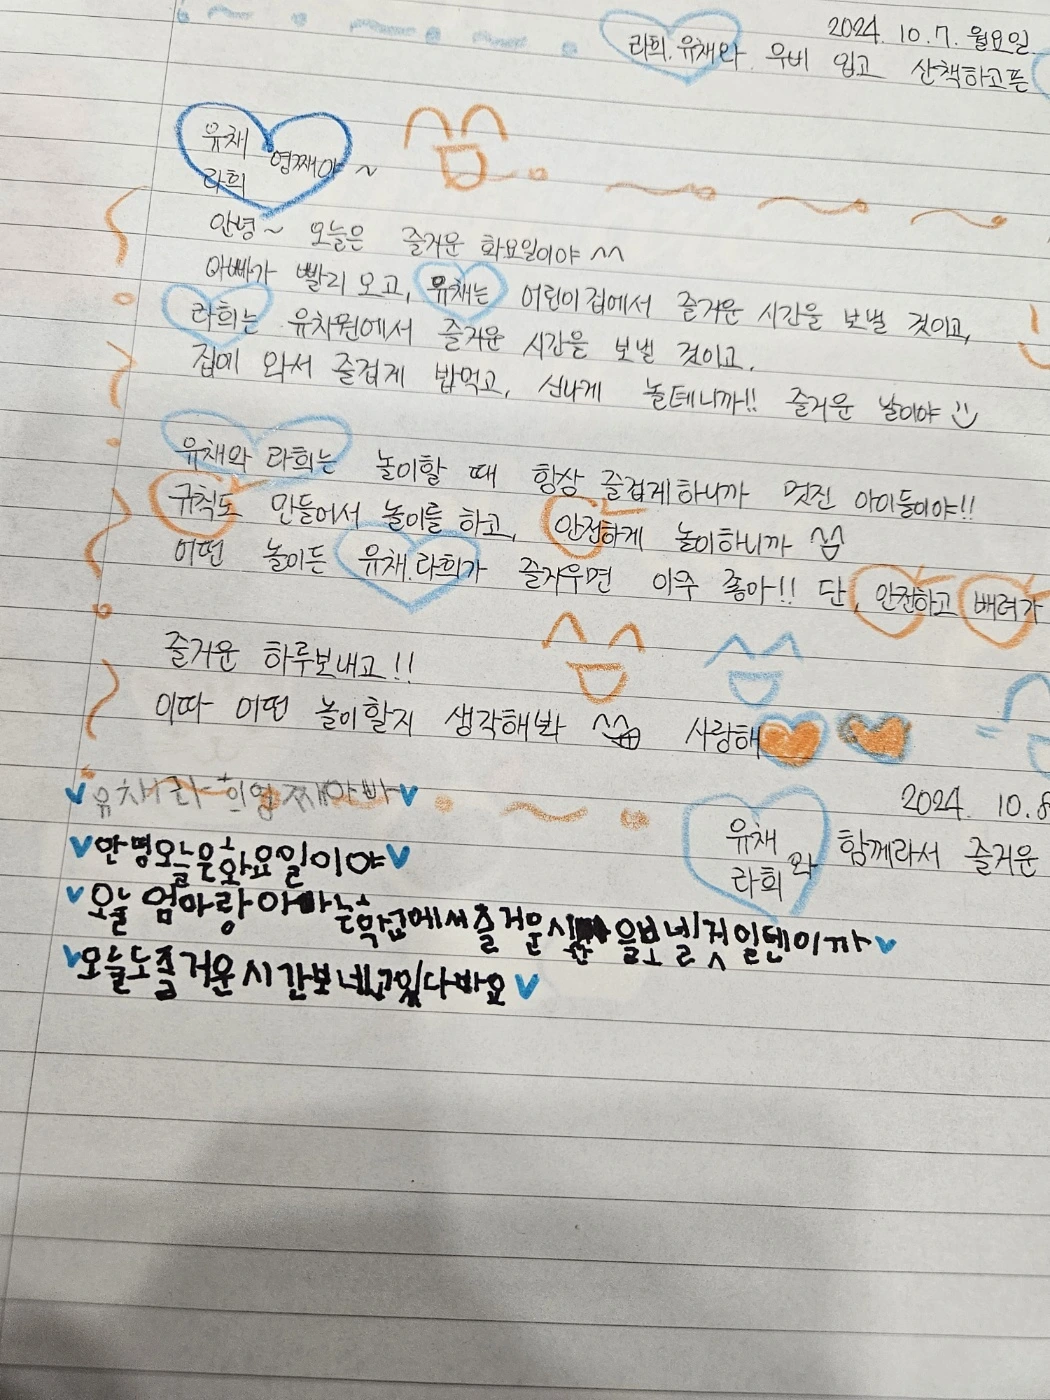 2024. 10. 7. 월요일
라희.유채와 우비 입고 산책하고픈
유채
라희 영찌야~
안녕~ 오늘은 즐거운 화요일이야 ^^
아빠가 빨리 오고, 유채는 어린이집에서 즐거운 시간을 보낼 것이고,
라희는 유치원에서 즐거운 시간을 보낼 것이고,
집에 와서 즐겁게 밥먹고, 신나게 놀테니까!! 즐거운 날이야
유채와 라희는 놀이할 때 항상 즐겁게하니까 멋진 아이들이야!!
규칙도 만들어서 놀이를 하고, 안전하게 놀이하니까
어떤 놀이든 유채.라희가 즐거우면 아주 좋아!! 단, 안전하고 배려가
즐거운 하루보내고!!
이따 어떤 놀이할지 생각해봐 사랑해
유채라희영찌아빠
2024. 10.8
유채
라희 와 함께라서 즐거운
안녕오늘은화요일이야
오늘 엄마랑아빠는 에서즐거운시 을보넬 일텐이까
오늘도즐거운시간보네고